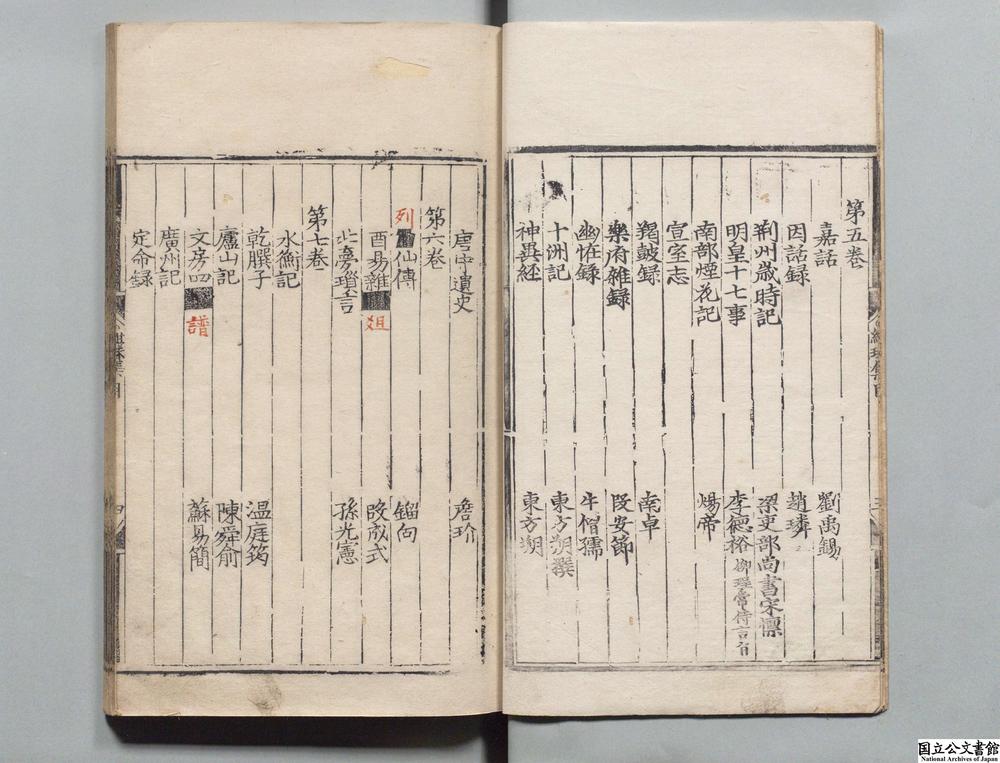 第五巻
嘉話 劉禹錫
因話録 趙璘
荊州歳時記 梁吏部尚書宋懍
明皇十七事 李徳裕
南部煙花記 煬帝
宣室志
羯鼓録 南卓
樂府雑録 段安節
幽怪録 牛僧孺
十洲記 東方朔撰
神異経 東方朔
唐宋遺史 詹玠
第六巻
列仙傳 劉向
酉昜雑俎 段成式
北夢瑣言 孫光憲
第七巻
水衡記
乾𦠆子 温庭筠
廬山記 陳舜俞
文房四譜 蘇昜簡
廣州記
定命録
国立公文書館
National Archives of Japan